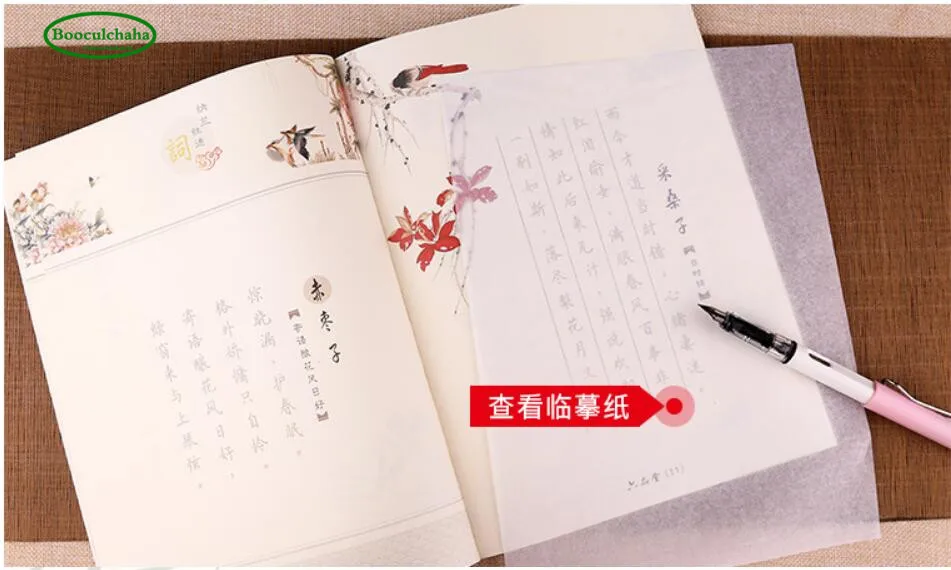 Booculchaha
詞
赤枣子
寄语酿花风日好
惊晓漏，护春眠。
格外娇慵只自怜。
寄语酿花风日好，
绿窗来与上琴弦。
采桑子
当时错
而今才道当时错，心绪凄迷。
红泪偷垂，满眼春风百事非
情知此后来无计，强说欢
一别如斯，落尽梨花月又
六品堂(11)
查看临摹纸